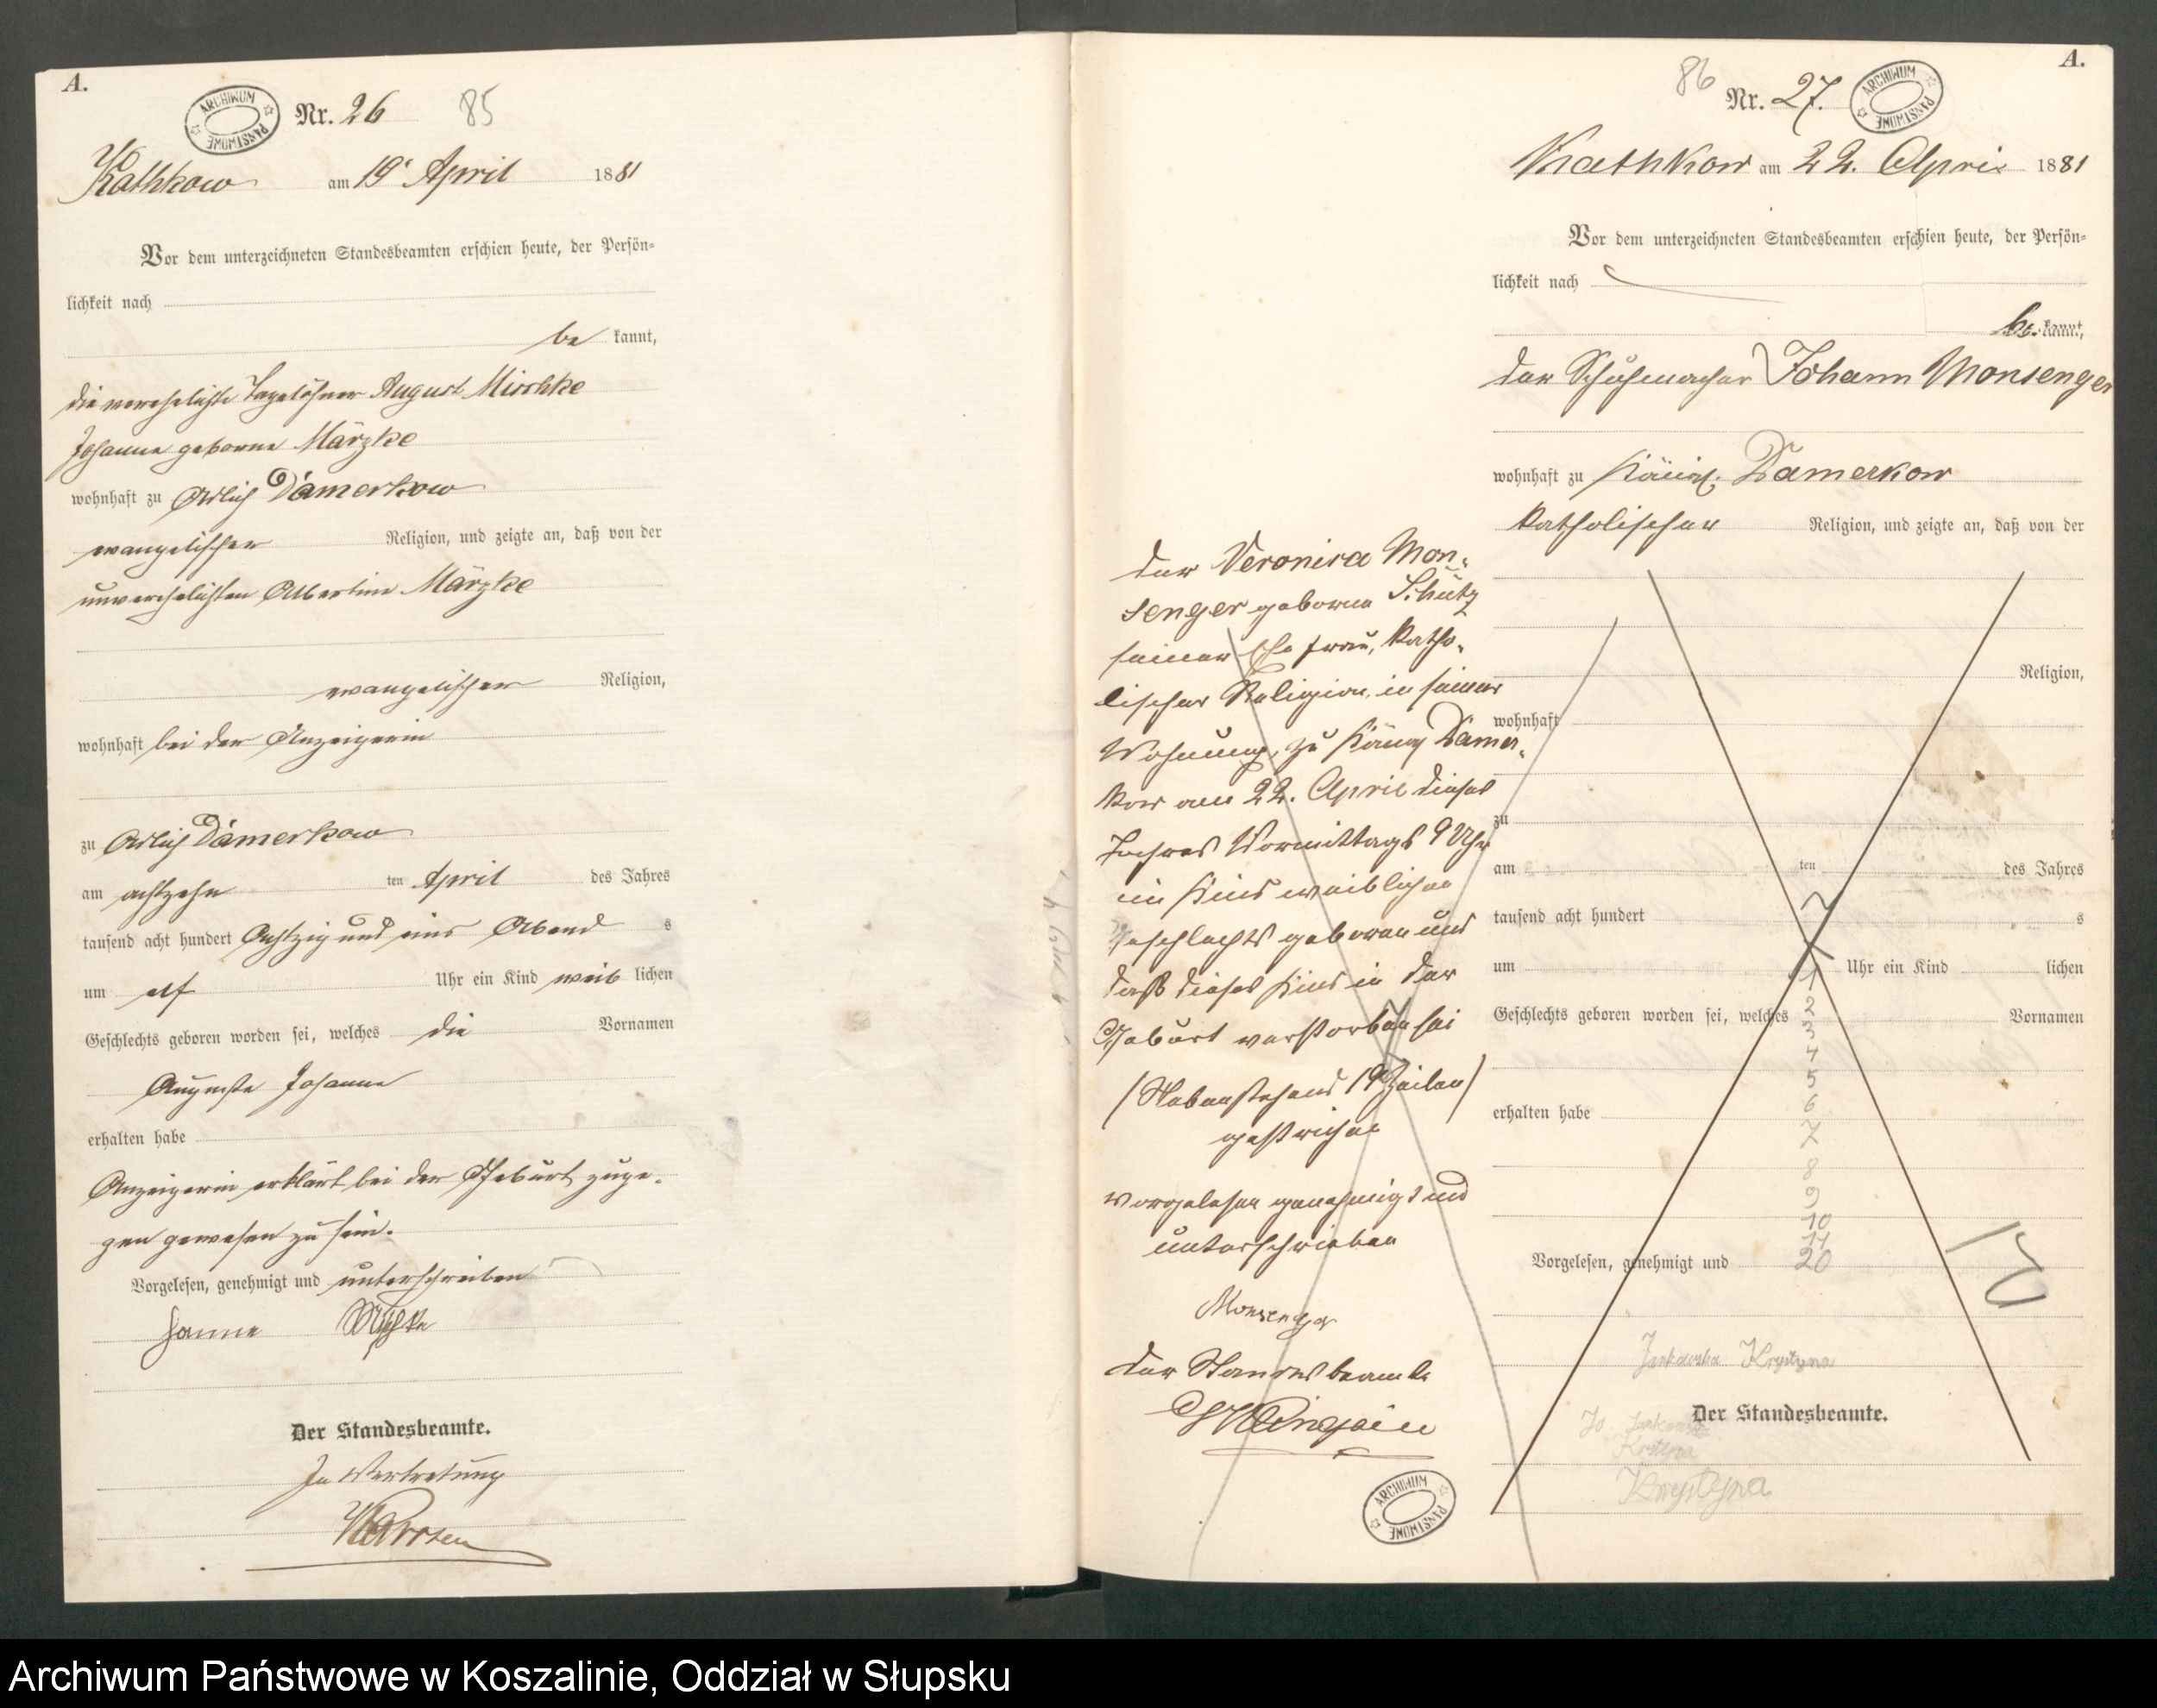 A.
ARCHIWUM PAŃSTWOWE
Nr. 26 85
Kathkow am 19. April 1881
Vor dem unterzeichneten Standesbeamten erschien heute, der Persön=
lichkeit nach
be kannt,
die verehelichte Tagelöhner August Mischke
Johanne geborne Märzke
wohnhaft zu Adlich Damerkow
evangelischer Religion, und zeigte an, daß von der
unverehelichten Albertine Märzke
evangelischer Religion,
wohnhaft bei der Anzeigerin
zu Adlich Damerkow
am achtzehn ten April des Jahres
tausend acht hundert Achtzig und eins Abend s
um elf Uhr ein Kind weib lichen
Geschlechts geboren worden sei, welches die Vornamen
Auguste Johanne
erhalten habe
Anzeigerin erklärt bei der Geburt zuge-
gen gewesen zu sein.
Vorgelesen, genehmigt und unterschrieben
Hanne Mischke
Der Standesbeamte.
In Vertretung
Karsten
A.
86 Nr. 27.
ARCHIWUM PAŃSTWOWE
Kathkow am 22. April 1881
Vor dem unterzeichneten Standesbeamten erschien heute, der Persön=
lichkeit nach
be kannt,
der Schuhmacher Johann Monsenger
wohnhaft zu Königl. Damerkow
katholischer Religion, und zeigte an, daß von der
Religion,
wohnhaft
zu
am ten des Jahres
tausend acht hundert s
um Uhr ein Kind lichen
Geschlechts geboren worden sei, welches Vornamen
erhalten habe
Vorgelesen, genehmigt und
1
2
3
4
5
6
7
8
9
10
11
20
Jankowska Krystyna
Der Standesbeamte.
Krystyna
Krystyna
der Veronica Mon-
senger geborne Schütz
seiner Ehefrau, katho-
lischer Religion, in seiner
Wohnung, zu Königl Damer-
kow am 22. April dieses
Jahres Vormittags 9 Uhr
ein Kind weiblichen
Geschlechts geboren und
daß dieses Kind in der
Geburt verstorben sei
/Nebenstehend 19 Zeilen/
gestrichen
vorgelesen genehmigt und
unterschrieben
Monsenger
der Standesbeamte
ARCHIWUM PAŃSTWOWE
Archiwum Państwowe w Koszalinie, Oddział w Słupsku